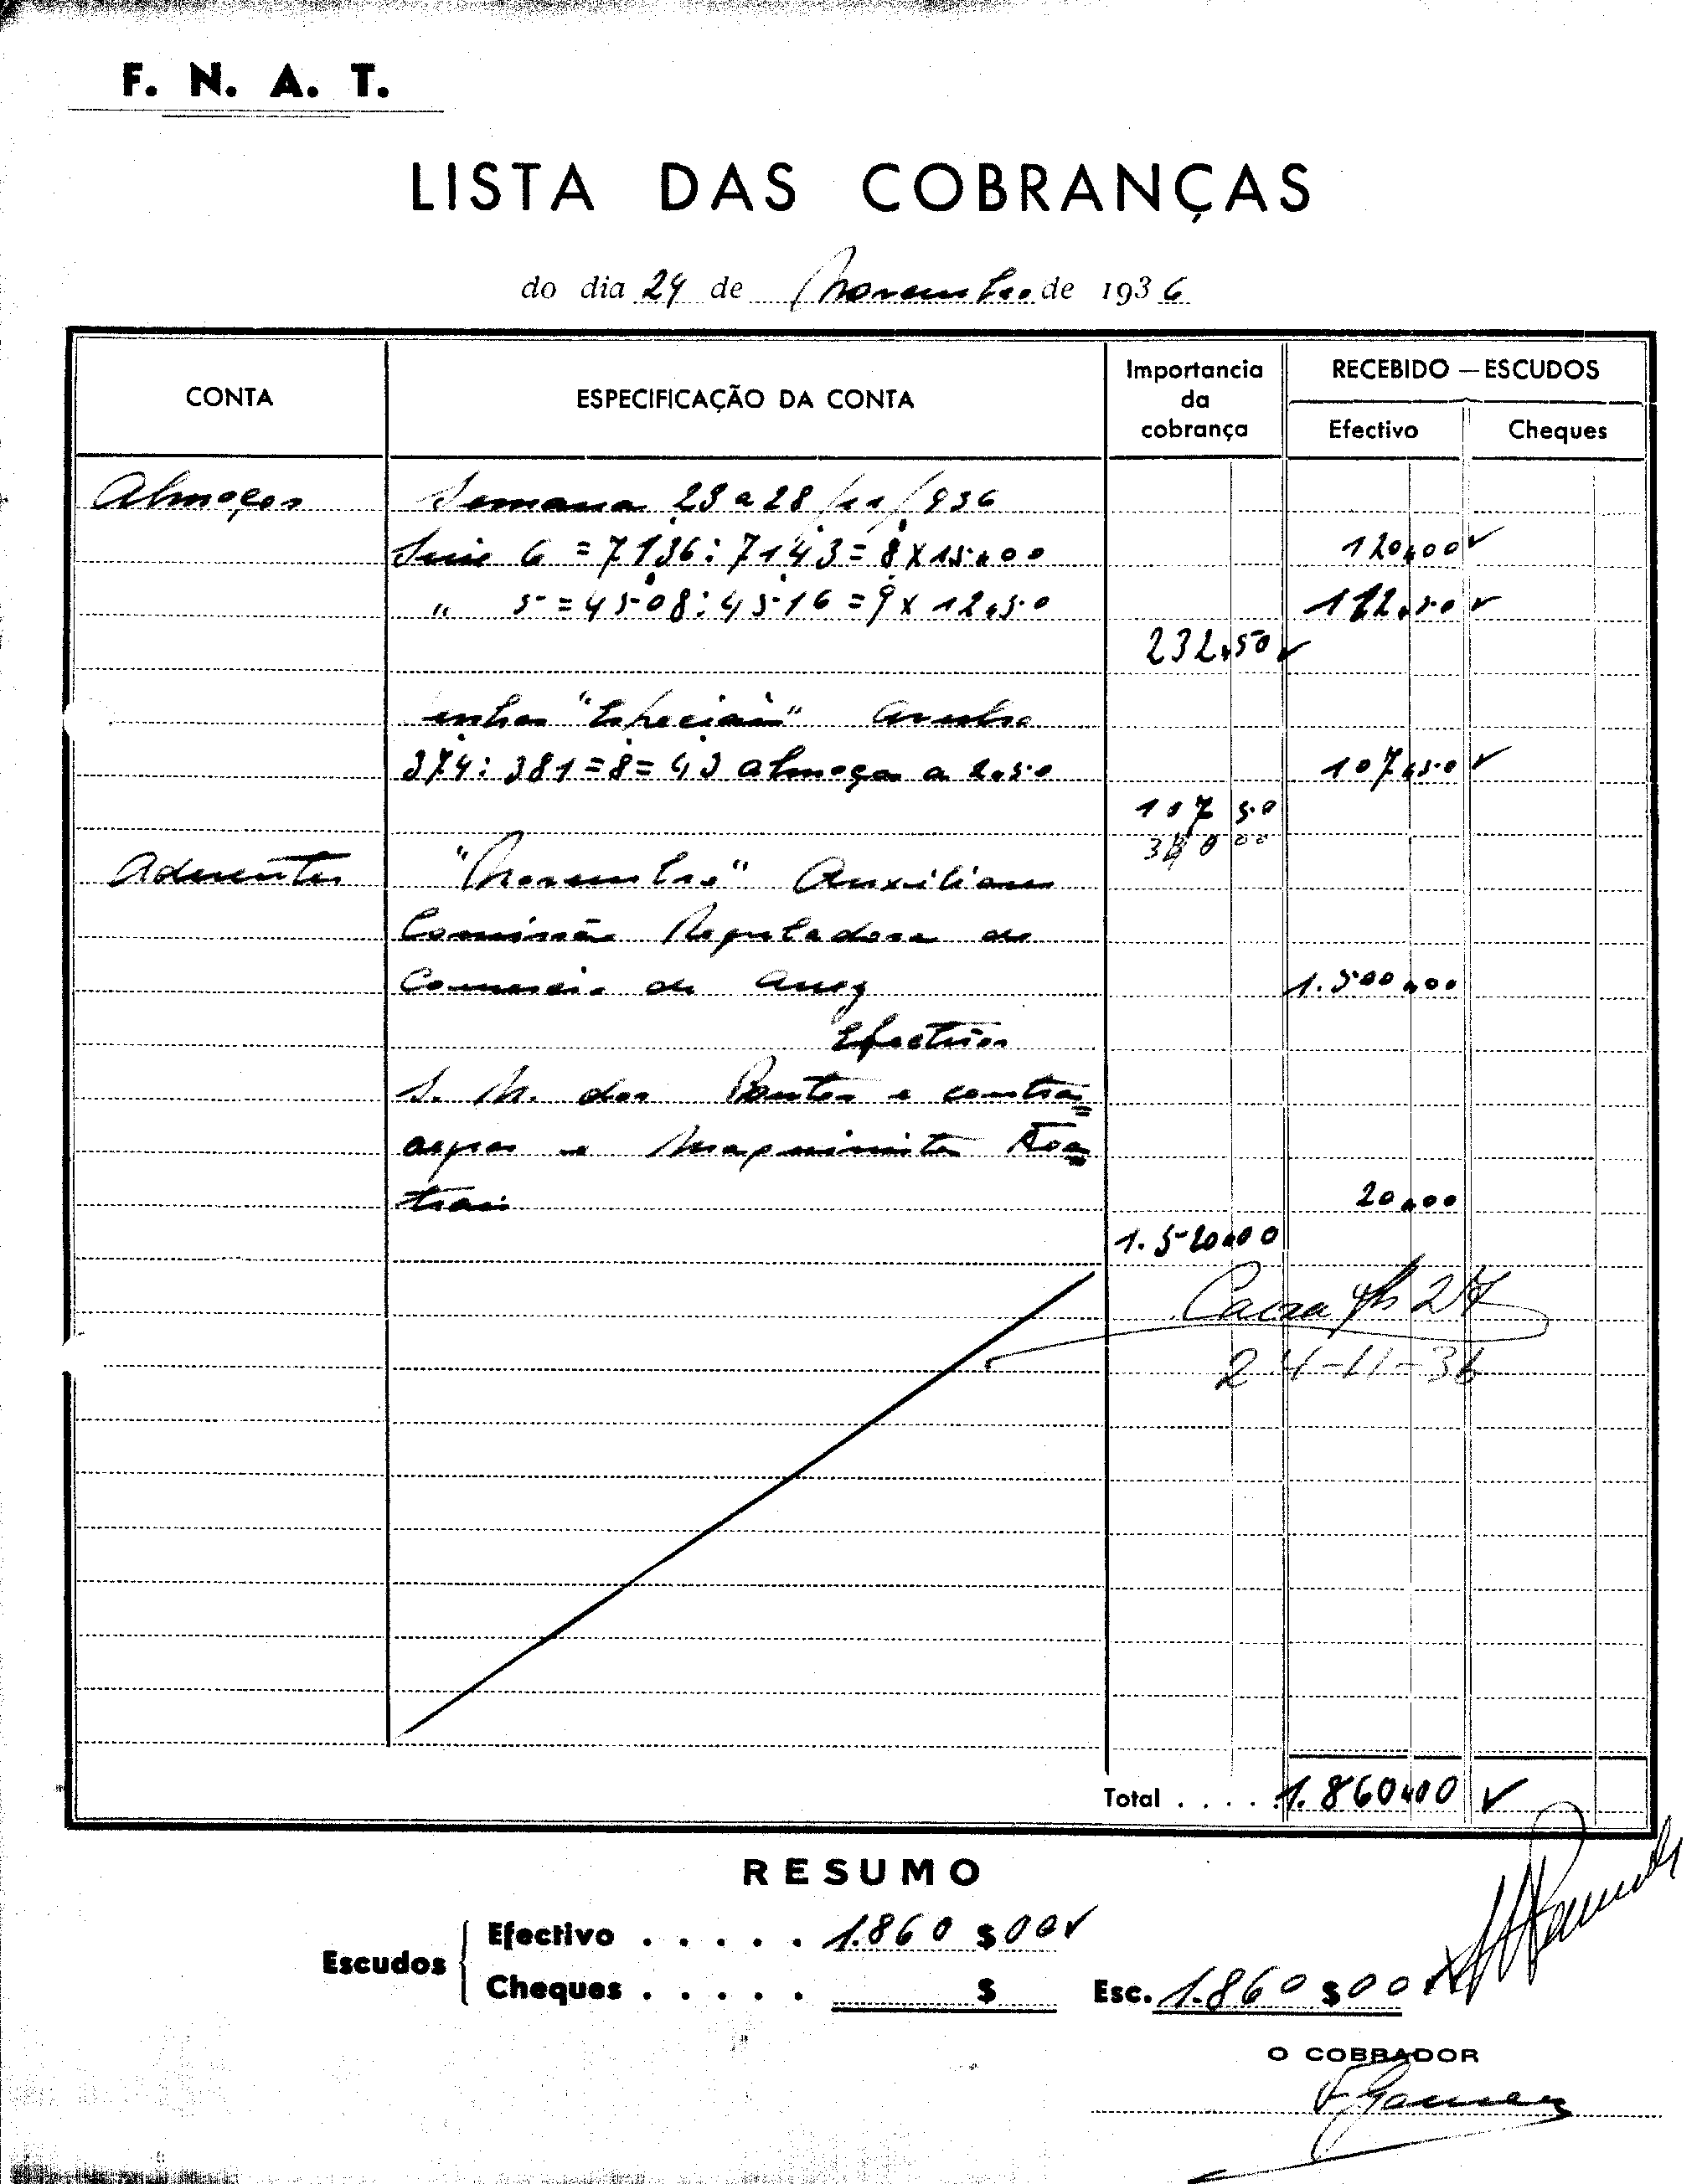 F. N. A. T.
LISTA DAS COBRANÇAS
do dia 24 de Novembro de 1936
CONTA
ESPECIFICAÇÃO DA CONTA
Importancia da cobrança
RECEBIDO — ESCUDOS
Efectivo
Cheques
Almoços Semana 23 a 28/11/936
Serie 6 = 7136 : 7143 = 8 x 15$00 120$00
" 5 = 4508 : 4516 = 9 x 12,50 112,50
232,50
"Especiais"
374 : 381 = 8 = 43 almoços a 2,50 107,50
107 50
340 00
Aderentes "Novembro" Auxiliares
Comissão Reguladora do
Comercio de Arroz 1.500,00
Efectivos
S. N. dos Pontos e contra=
regras e Maquinistas Tea=
trais 20,00
1.520,00
Caixa fls 27
24-11-36
Total . . . . 1.860,00
RESUMO
Escudos
Efectivo . . . . . 1.860 $ 00
Cheques . . . . . $
Esc. 1.860 $ 00
O COBRADOR